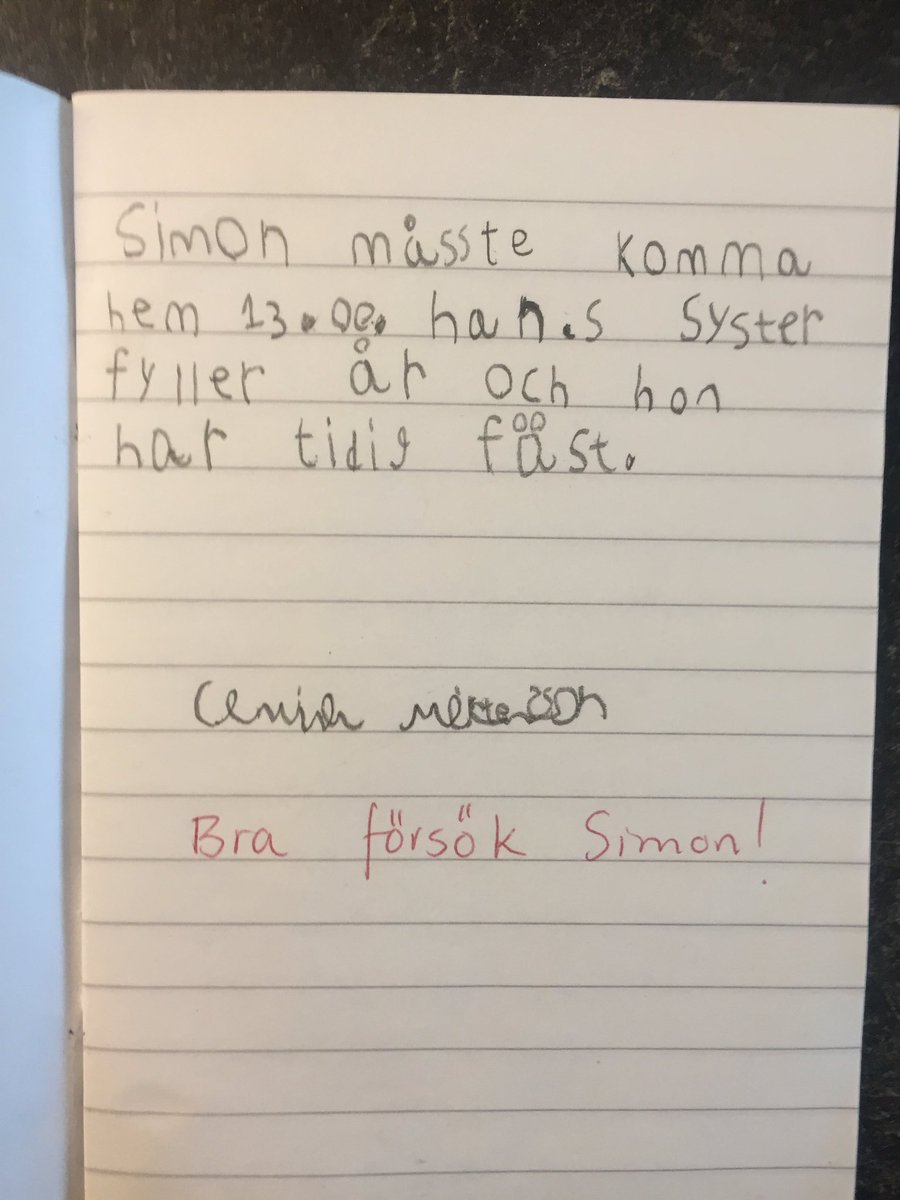 Simon måsste komma
hem 13.00. han.s syster
fyller år och hon
har tidig fäst.
Bra försök Simon!